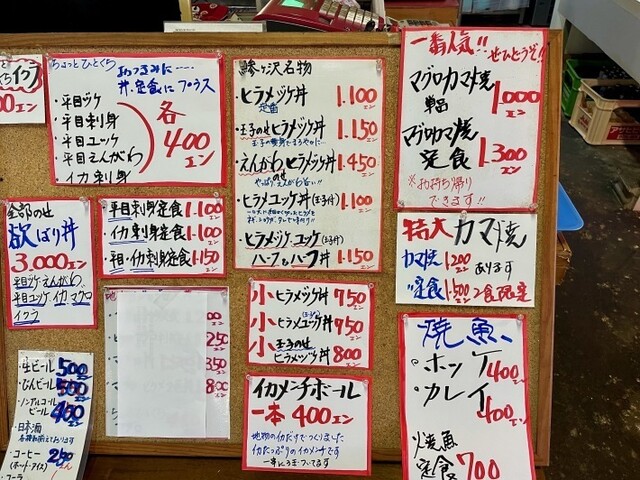 イクラ
00エン
ちょっとひとくち
おつまみに・・・・
丼、定食にプラス
・平目ヅケ
・平目刺身
・平目ユッケ
・平目えんがわ
・イカ刺身
各
400
エン
鰺ヶ沢名物
・ヒラメヅケ丼 1.100
定番 エン
・玉子のせヒラメヅケ丼 1.150
エン
・えんがわヒラメヅケ丼 1.450
のせ エン
・ヒラメユッケ丼(玉子付) 1.100
エン
・ヒラメヅケ、ユッケ(玉子付)
ハーフ&ハーフ丼 1.150
エン
一番人気!! ぜひどうぞ!!
マグロカマ焼
単品 1.000
エン
マグロカマ焼
定食 1.300
エン
※お持ち帰り
できます!!
全部のせ
欲ばり丼
3.000エン
平目ヅケ、えんがわ、
平目ユッケ、イカ、マグロ
イクラ
・平目刺身定食 1.100
エン
・イカ刺身定食 1.100
エン
・平目・イカ刺身定食 1.150
エン
特大 カマ焼
カマ焼 1200 あります
エン
〃定食 1.500 2食限定
エン
00
250
350
800
小 ヒラメヅケ丼 750
エン
小 ヒラメユッケ丼 950
(玉子付) エン
小 玉子のせ
ヒラメヅケ丼 800
エン
焼魚
・ホッケ 400
エン
・カレイ 400
エン
焼魚
定食 700
エン
・生ビール 500
エン
・びんビール 500
エン
・ノンアルコール
ビール 400
エン
・日本酒
各種お燗してあります
・コーヒー 250
(ホット・アイス) エン
・コーラ
イカメンチボール
一本 400エン
地物のイカだけでつくりました
イカたっぷりのイカメンチです